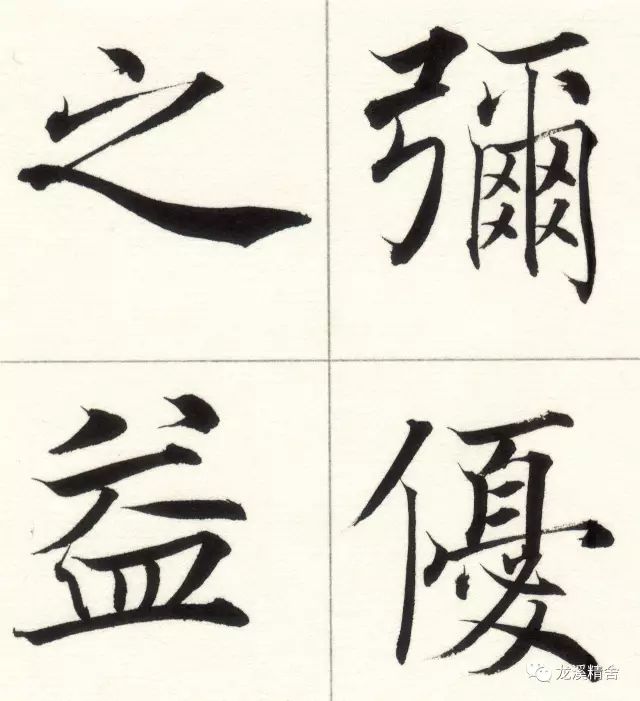 彌優
之益
龙溪精舍